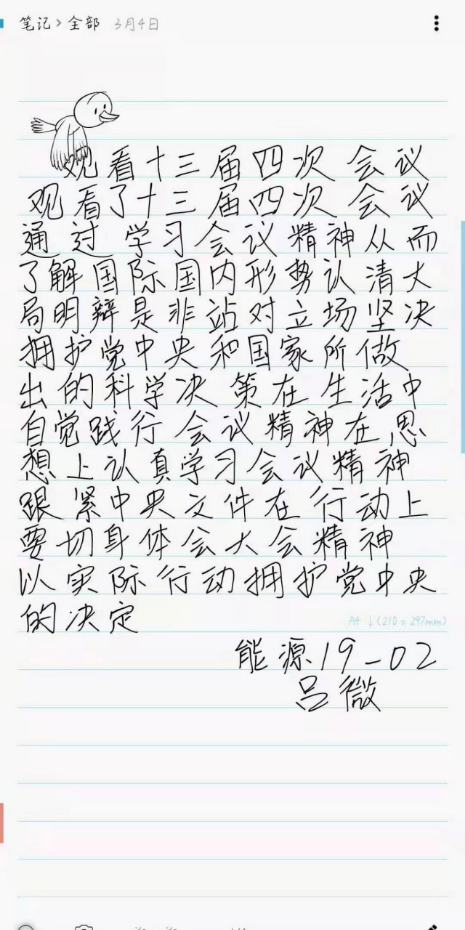 笔记>全部 3月4日
观看十三届四次会议
观看了十三届四次会议
通过学习会议精神从而
了解国际国内形势认清大
局明辩是非站对立场坚决
拥护党中央和国家所做
出的科学决策在生活中
自觉践行会议精神在思
想上认真学习会议精神
跟紧中央文件在行动上
要切身体会大会精神
以实际行动拥护党中央
的决定
A4 ↓(210×297mm)
能源19-02
吕微